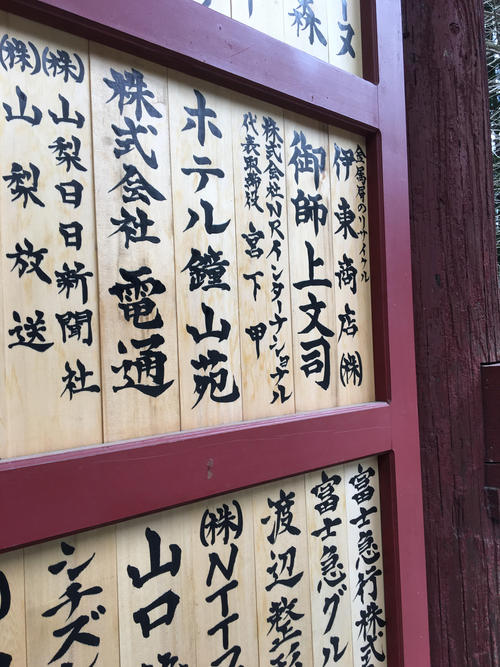 ーヌ
森
金属屑のリサイクル
伊東商店(株)
御師上文司
株式会社NRインターナショナル
代表取締役 宮下甲
ホテル鐘山苑
株式会社 電通
(株)山梨日日新聞社
(株)山梨放送
富士急行株式
富士急グル
渡辺整
(株)NTTス
山口
シチズ